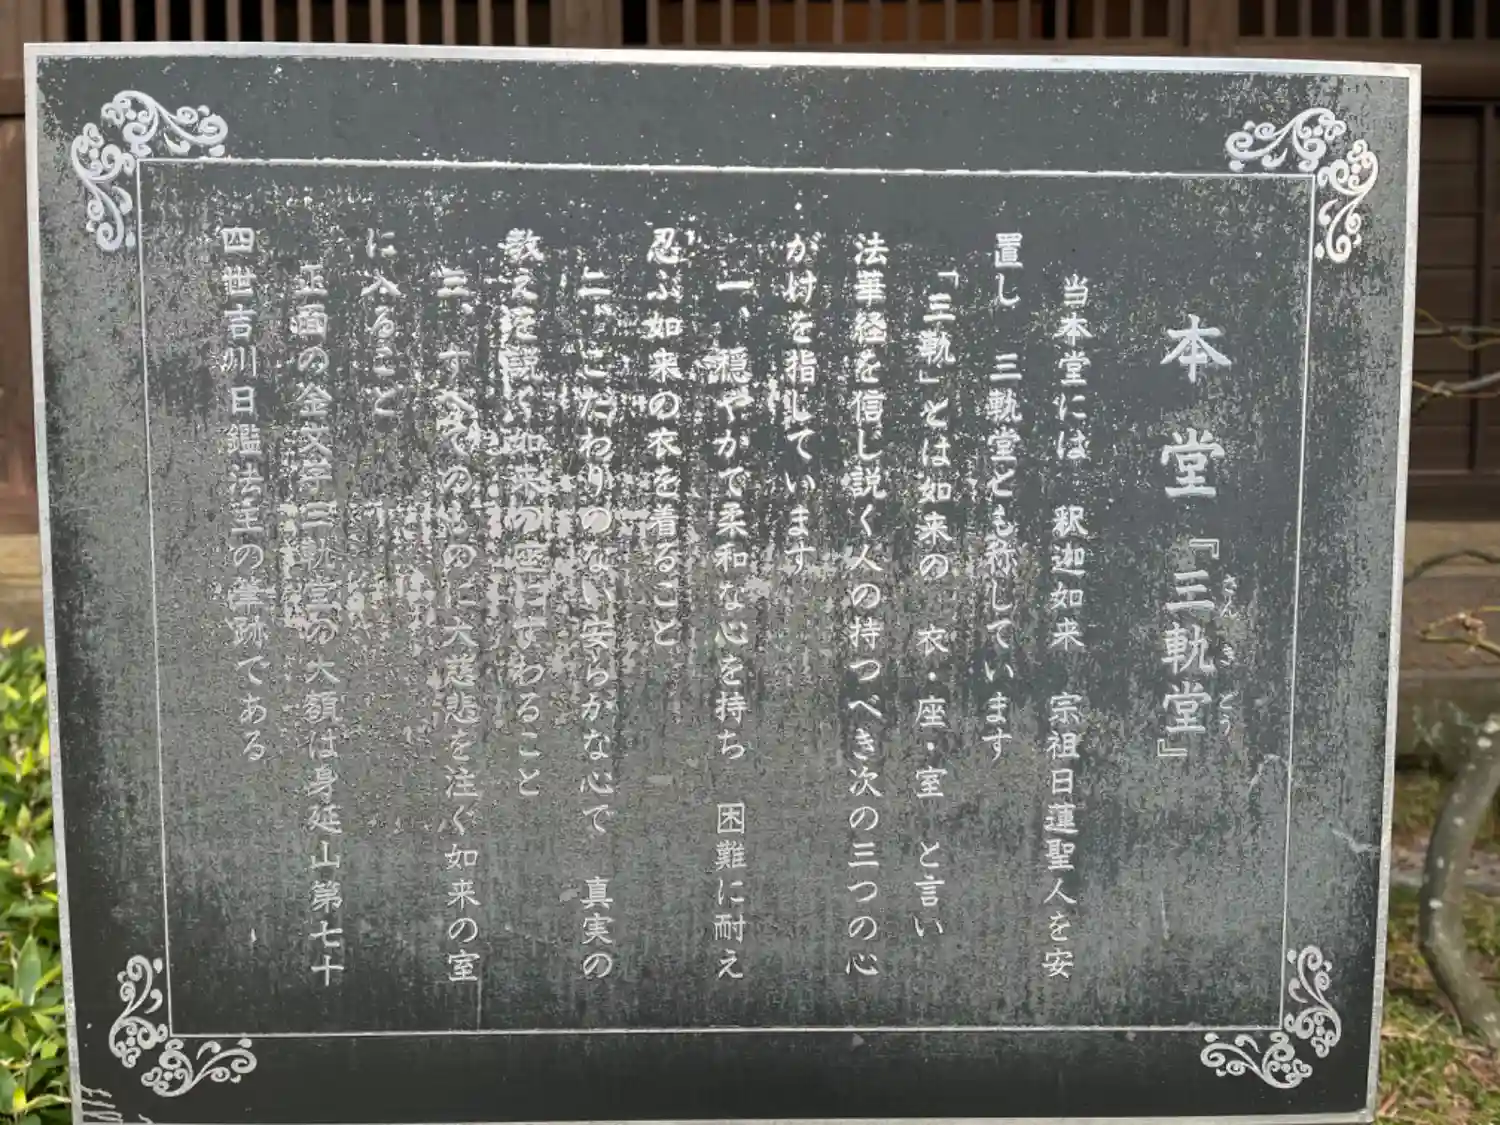 本堂『三軌堂』
さんきどう
当本堂には 釈迦如来 宗祖日蓮聖人を安
置し 三軌堂とも称しています
「三軌」とは如来の 衣・座・室 と言い
法華経を信じ説く人の持つべき次の三つの心
がけを指しています
一、穏やかで柔和な心を持ち 困難に耐え
忍ぶ如来の衣を着ること
二、こだわりのない安らかな心で 真実の
教えを説く如来の座にすわること
三、すべてのものに大慈悲を注ぐ如来の室
に入ること
正面の金文字三軌堂の大額は身延山第七十
四世吉川日鑑法主の筆跡である